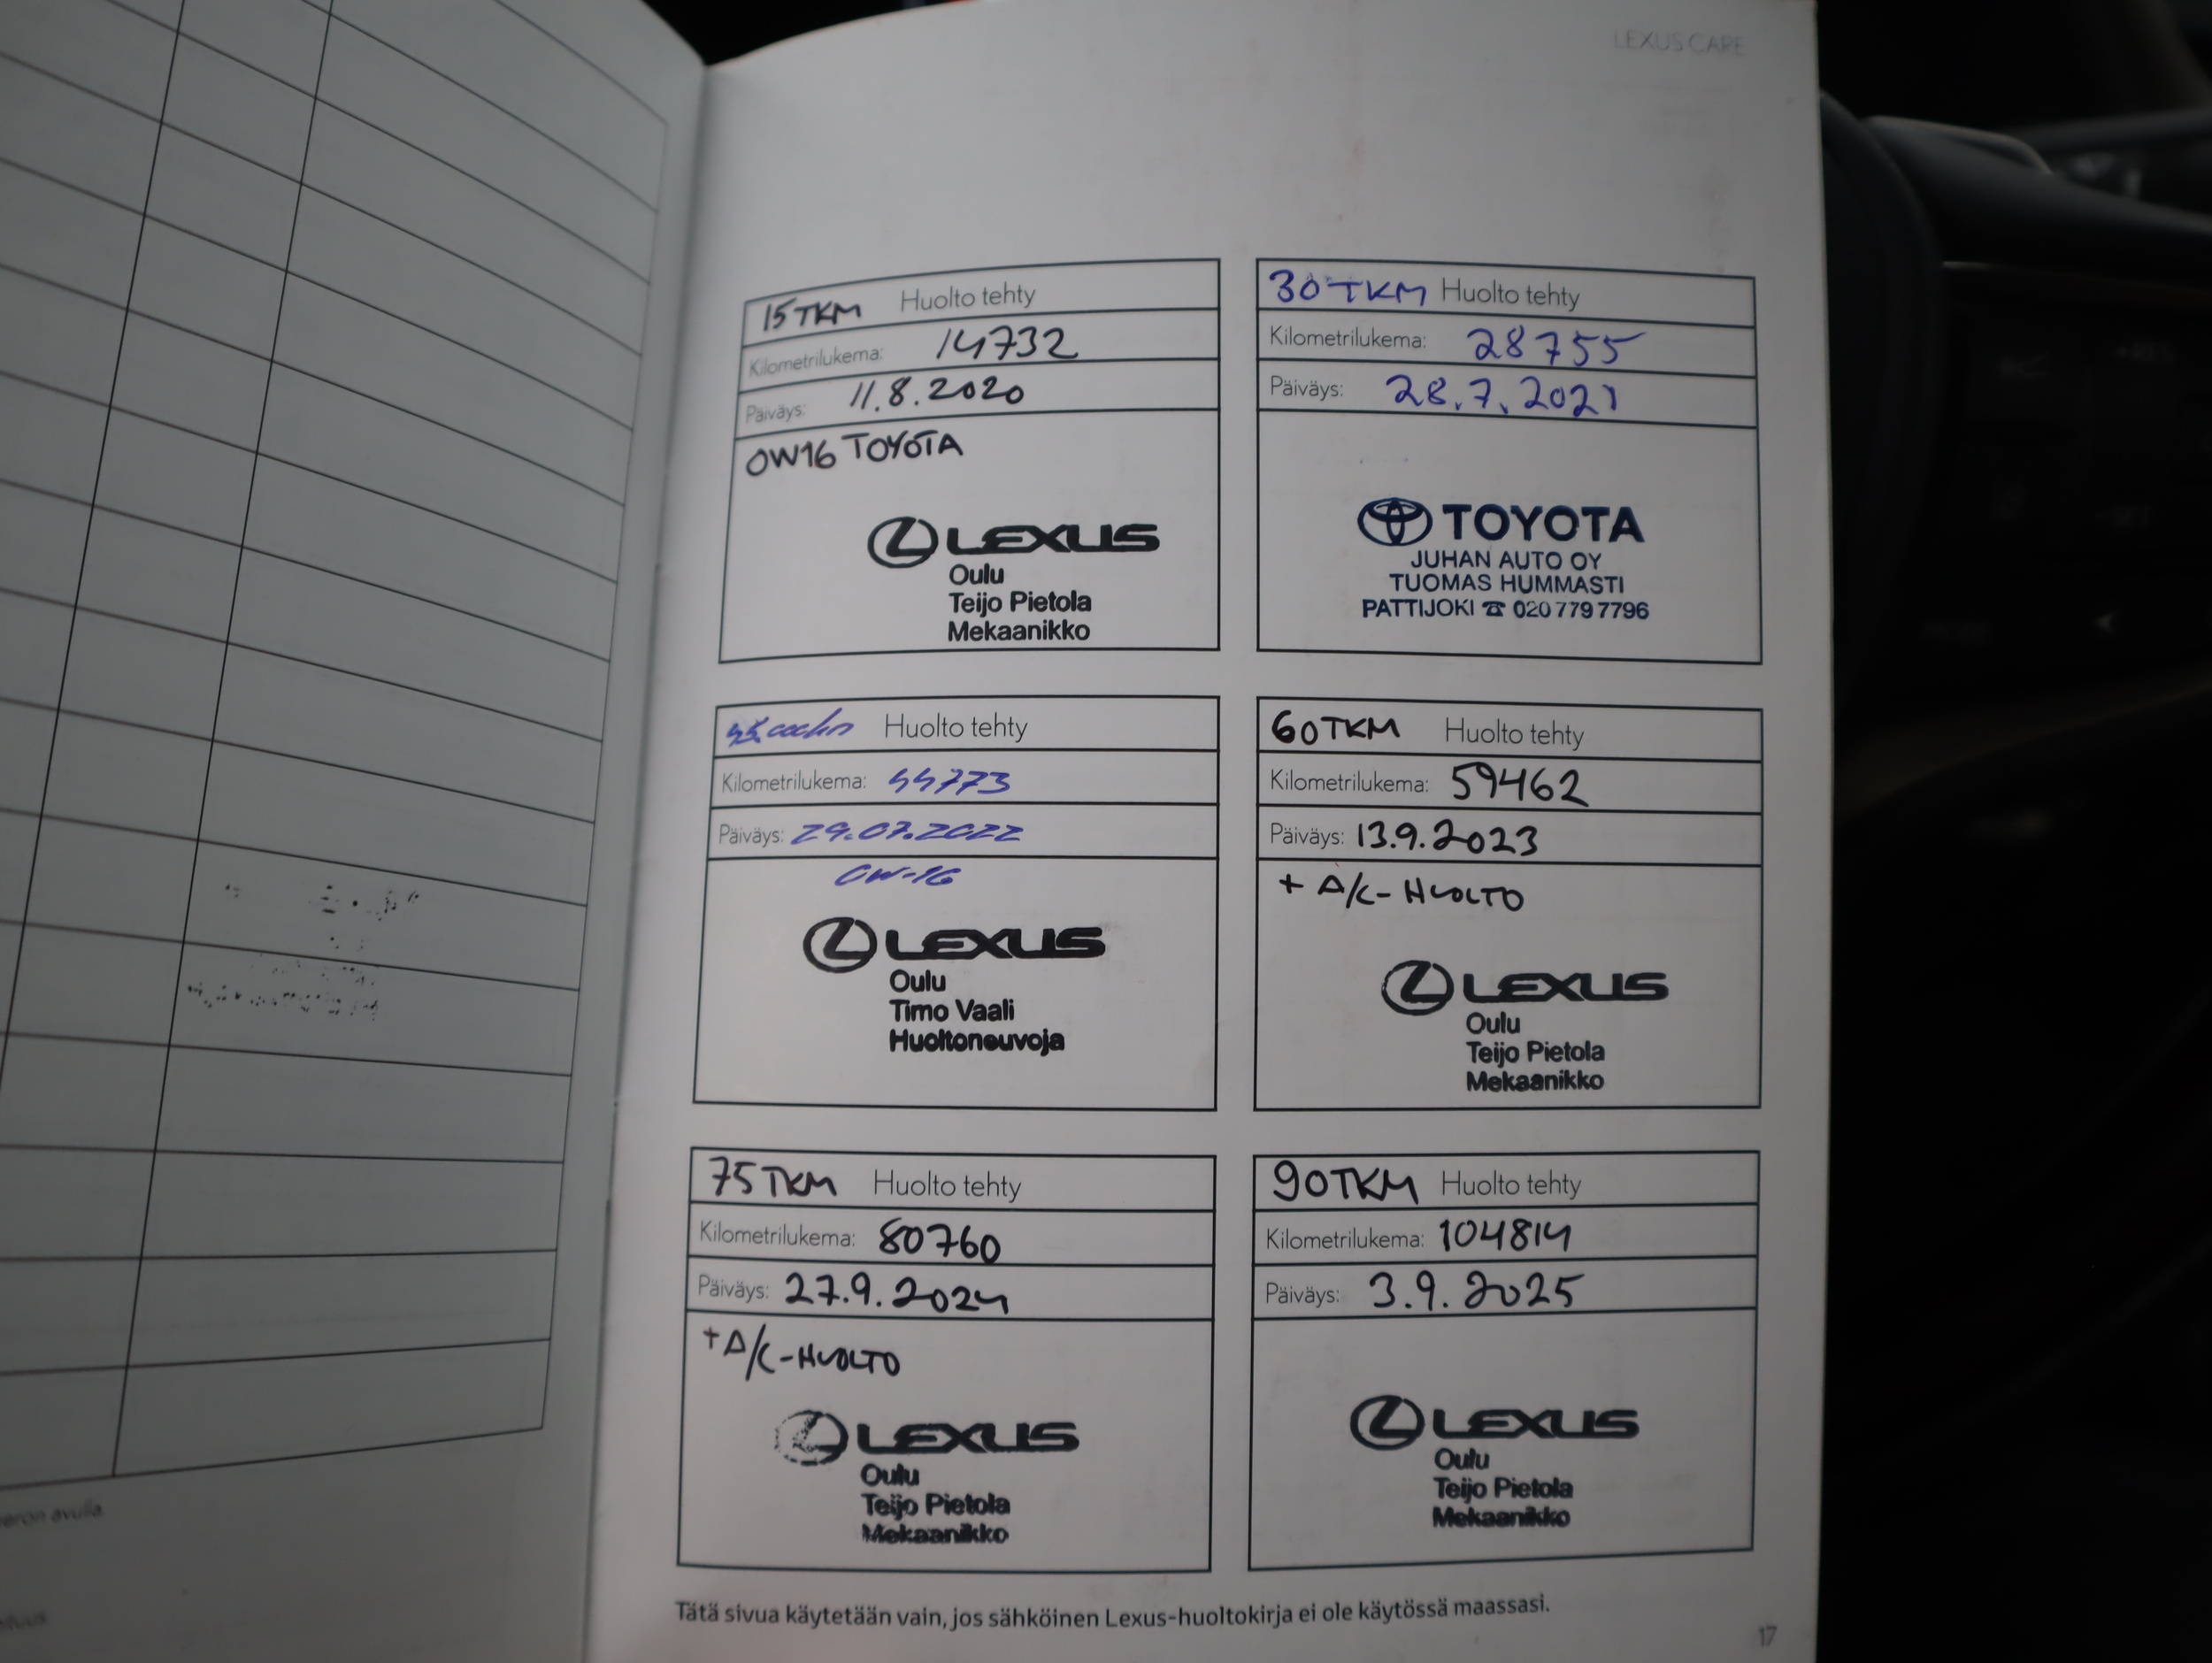 LEXUS CARE
15 TKM Huolto tehty
Kilometrilukema: 14732
Päiväys: 11.8.2020
OW16 TOYOTA
LEXUS
Oulu
Teijo Pietola
Mekaanikko
30 TKM Huolto tehty
Kilometrilukema: 28755
Päiväys: 28.7.2021
TOYOTA
JUHAN AUTO OY
TUOMAS HUMMASTI
PATTIJOKI ☎ 020 779 7796
Huolto tehty
Kilometrilukema: 44773
Päiväys: 29.07.2022
OW-16
LEXUS
Oulu
Timo Vaali
Huoltoneuvoja
60 TKM Huolto tehty
Kilometrilukema: 59462
Päiväys: 13.9.2023
+ A/C-HUOLTO
LEXUS
Oulu
Teijo Pietola
Mekaanikko
75 TKM Huolto tehty
Kilometrilukema: 80760
Päiväys: 27.9.2024
+ A/C-HUOLTO
LEXUS
Oulu
Teijo Pietola
Mekaanikko
90 TKM Huolto tehty
Kilometrilukema: 104814
Päiväys: 3.9.2025
LEXUS
Oulu
Teijo Pietola
Mekaanikko
Tätä sivua käytetään vain, jos sähköinen Lexus-huoltokirja ei ole käytössä maassasi.
17
avulla.